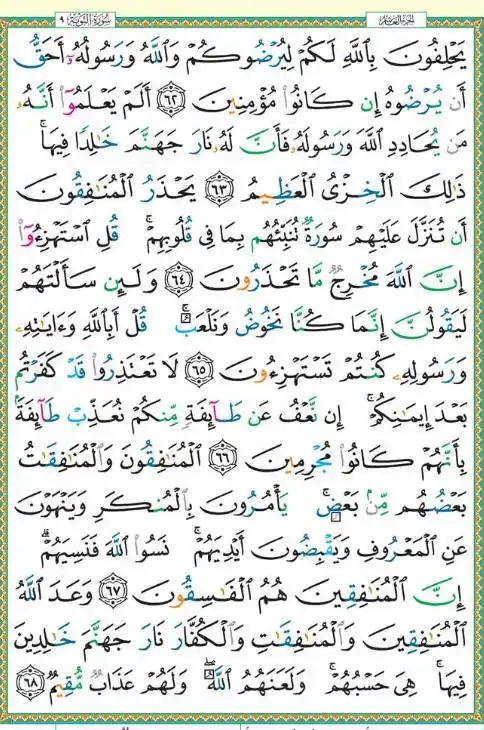 سورة التوبة ٩
الجزء العاشر
يَحۡلِفُونَ بِٱللَّهِ لَكُمۡ لِيُرۡضُوكُمۡ وَٱللَّهُ وَرَسُولُهُۥٓ أَحَقُّ
أَن يُرۡضُوهُ إِن كَانُواْ مُؤۡمِنِينَ ٦٢ أَلَمۡ يَعۡلَمُوٓاْ أَنَّهُۥ
مَن يُحَادِدِ ٱللَّهَ وَرَسُولَهُۥ فَأَنَّ لَهُۥ نَارَ جَهَنَّمَ خَٰلِدٗا فِيهَاۚ
ذَٰلِكَ ٱلۡخِزۡيُ ٱلۡعَظِيمُ ٦٣ يَحۡذَرُ ٱلۡمُنَٰفِقُونَ
أَن تُنَزَّلَ عَلَيۡهِمۡ سُورَةٞ تُنَبِّئُهُم بِمَا فِي قُلُوبِهِمۡۚ قُلِ ٱسۡتَهۡزِءُوٓاْ
إِنَّ ٱللَّهَ مُخۡرِجٞ مَّا تَحۡذَرُونَ ٦٤ وَلَئِن سَأَلۡتَهُمۡ
لَيَقُولُنَّ إِنَّمَا كُنَّا نَخُوضُ وَنَلۡعَبُۚ قُلۡ أَبِٱللَّهِ وَءَايَٰتِهِۦ
وَرَسُولِهِۦ كُنتُمۡ تَسۡتَهۡزِءُونَ ٦٥ لَا تَعۡتَذِرُواْ قَدۡ كَفَرۡتُم
بَعۡدَ إِيمَٰنِكُمۡۚ إِن نَّعۡفُ عَن طَآئِفَةٖ مِّنكُمۡ نُعَذِّبۡ طَآئِفَةَۢ
بِأَنَّهُمۡ كَانُواْ مُجۡرِمِينَ ٦٦ ٱلۡمُنَٰفِقُونَ وَٱلۡمُنَٰفِقَٰتُ
بَعۡضُهُم مِّنۢ بَعۡضٖۚ يَأۡمُرُونَ بِٱلۡمُنكَرِ وَيَنۡهَوۡنَ
عَنِ ٱلۡمَعۡرُوفِ وَيَقۡبِضُونَ أَيۡدِيَهُمۡۚ نَسُواْ ٱللَّهَ فَنَسِيَهُمۡۗ
إِنَّ ٱلۡمُنَٰفِقِينَ هُمُ ٱلۡفَٰسِقُونَ ٦٧ وَعَدَ ٱللَّهُ
ٱلۡمُنَٰفِقِينَ وَٱلۡمُنَٰفِقَٰتِ وَٱلۡكُفَّارَ نَارَ جَهَنَّمَ خَٰلِدِينَ
فِيهَاۚ هِيَ حَسۡبُهُمۡۚ وَلَعَنَهُمُ ٱللَّهُۖ وَلَهُمۡ عَذَابٞ مُّقِيمٞ ٦٨